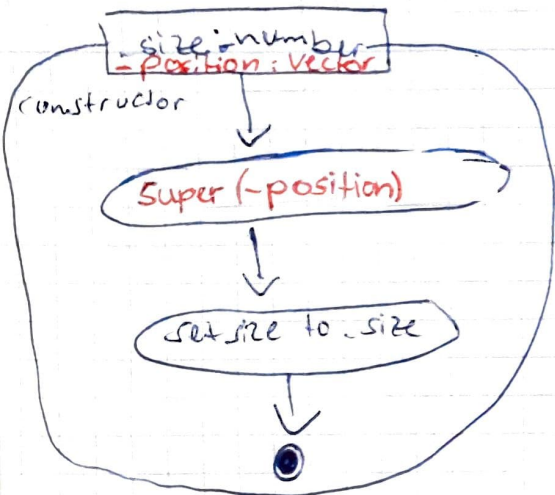 _size:number
-position: Vector
constructor
super (-position)
set size to _size